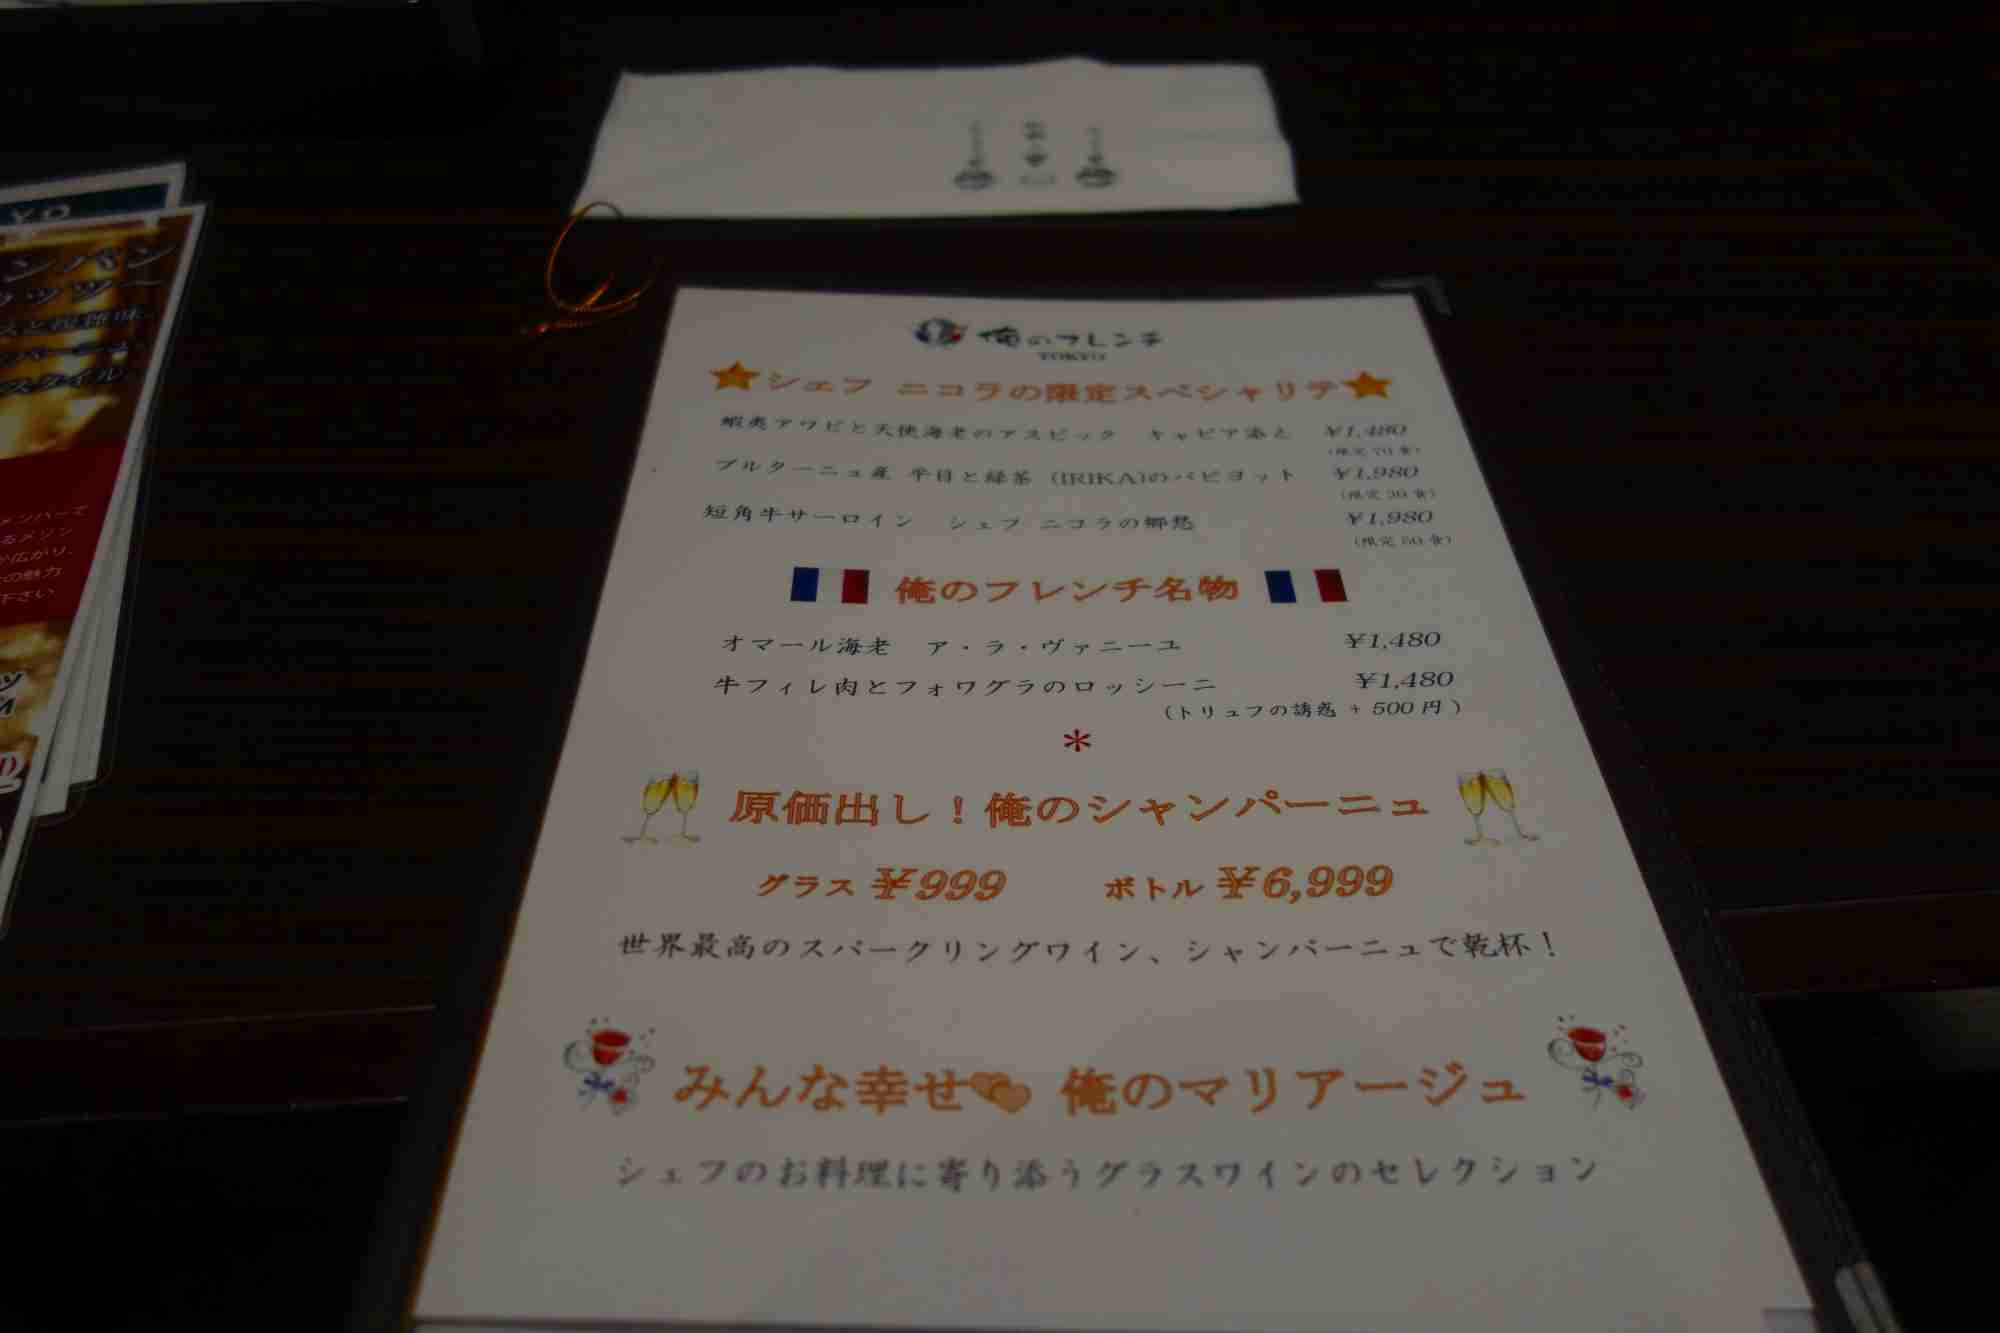 俺のフレンチ
TOKYO
シェフ ニコラの限定スペシャリテ
蝦夷アワビと天使海老のアスピック キャビア添え ¥1,480
(限定70食)
ブルターニュ産 平目と緑茶 (IRIKA)のパピヨット ¥1,980
(限定30食)
短角牛サーロイン シェフ ニコラの郷愁 ¥1,980
(限定50食)
俺のフレンチ名物
オマール海老 ア・ラ・ヴァニーユ ¥1,480
牛フィレ肉とフォワグラのロッシーニ ¥1,480
(トリュフの誘惑 + 500円)
*
原価出し!俺のシャンパーニュ
グラス ¥999 ボトル ¥6,999
世界最高のスパークリングワイン、シャンパーニュで乾杯!
みんな幸せ 俺のマリアージュ
シェフのお料理に寄り添うグラスワインのセレクション
YO
ンパン
スタイル
メンバーで
るメゾン
か広がり、
の魅力
下さい